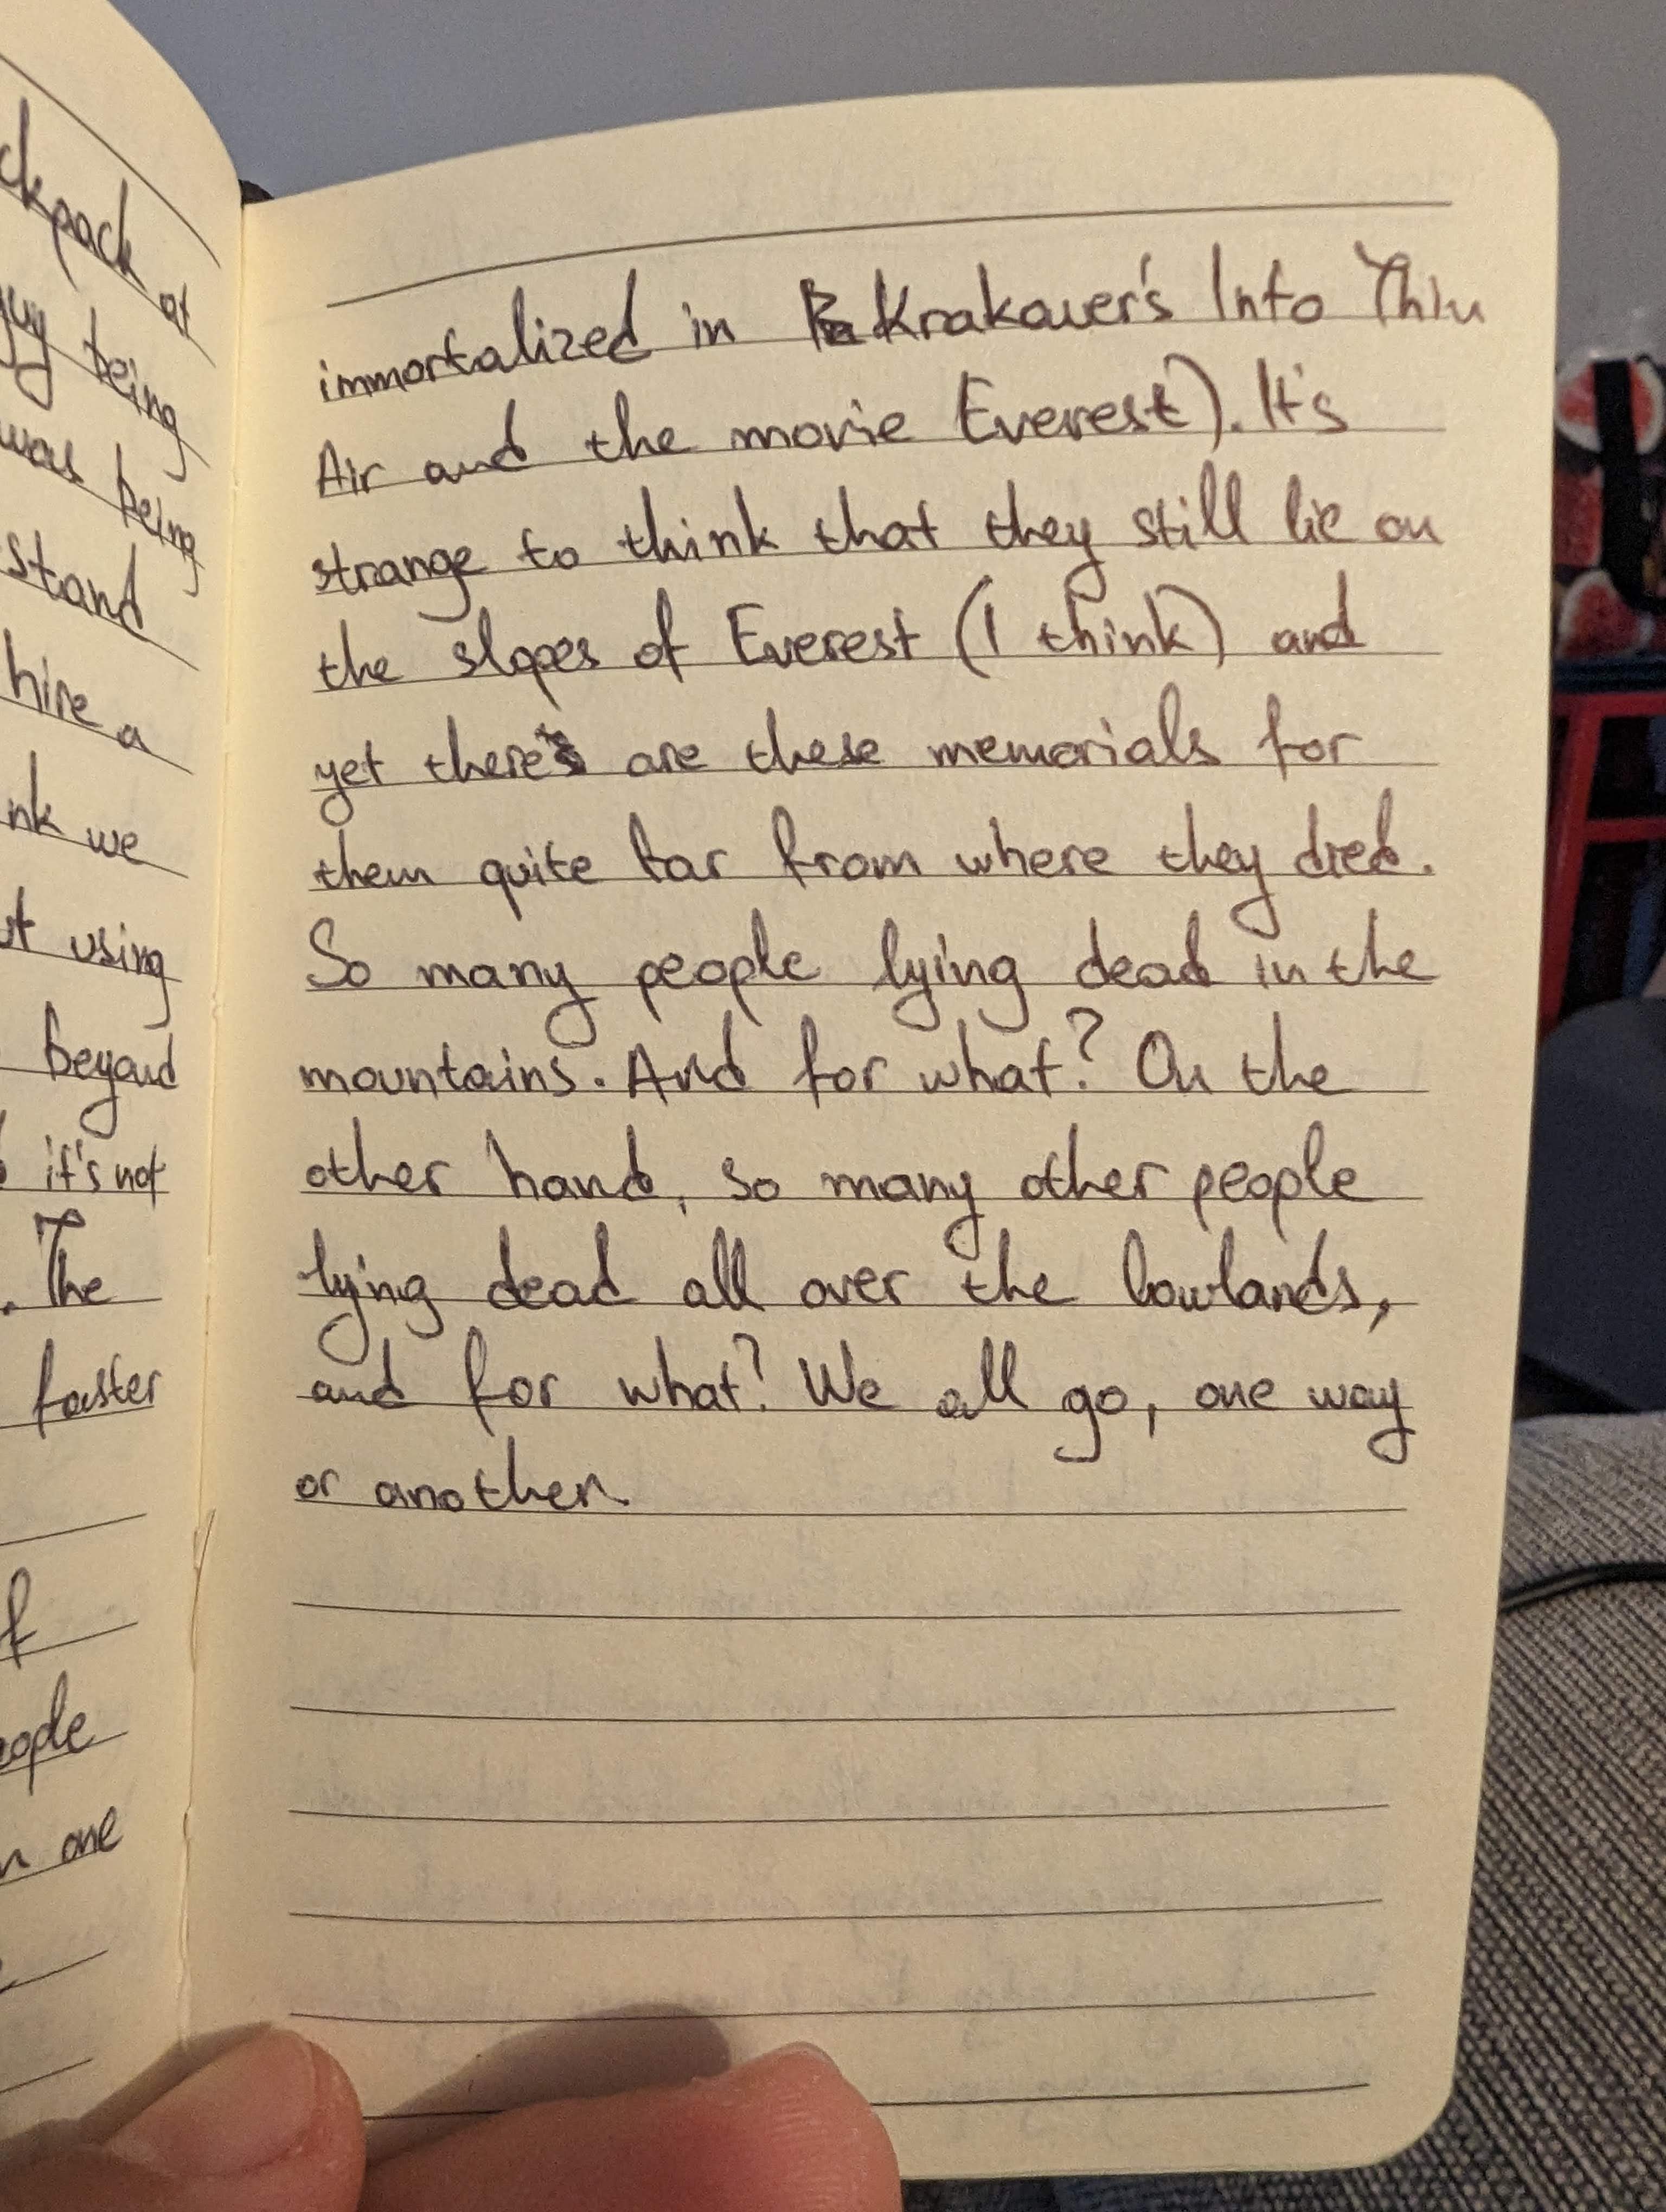 ckpack at
guy being
was being
stand
hire a
nk we
ut using
beyond
it's not
. The
faster
f
eople
n one
immortalized in Krakauer's Into Thin
Air and the movie Everest). It's
strange to think that they still lie on
the slopes of Everest (I think) and
yet there are these memorials for
them quite far from where they died.
So many people lying dead in the
mountains. And for what? On the
other hand, so many other people
lying dead all over the lowlands,
and for what? We all go, one way
or another.